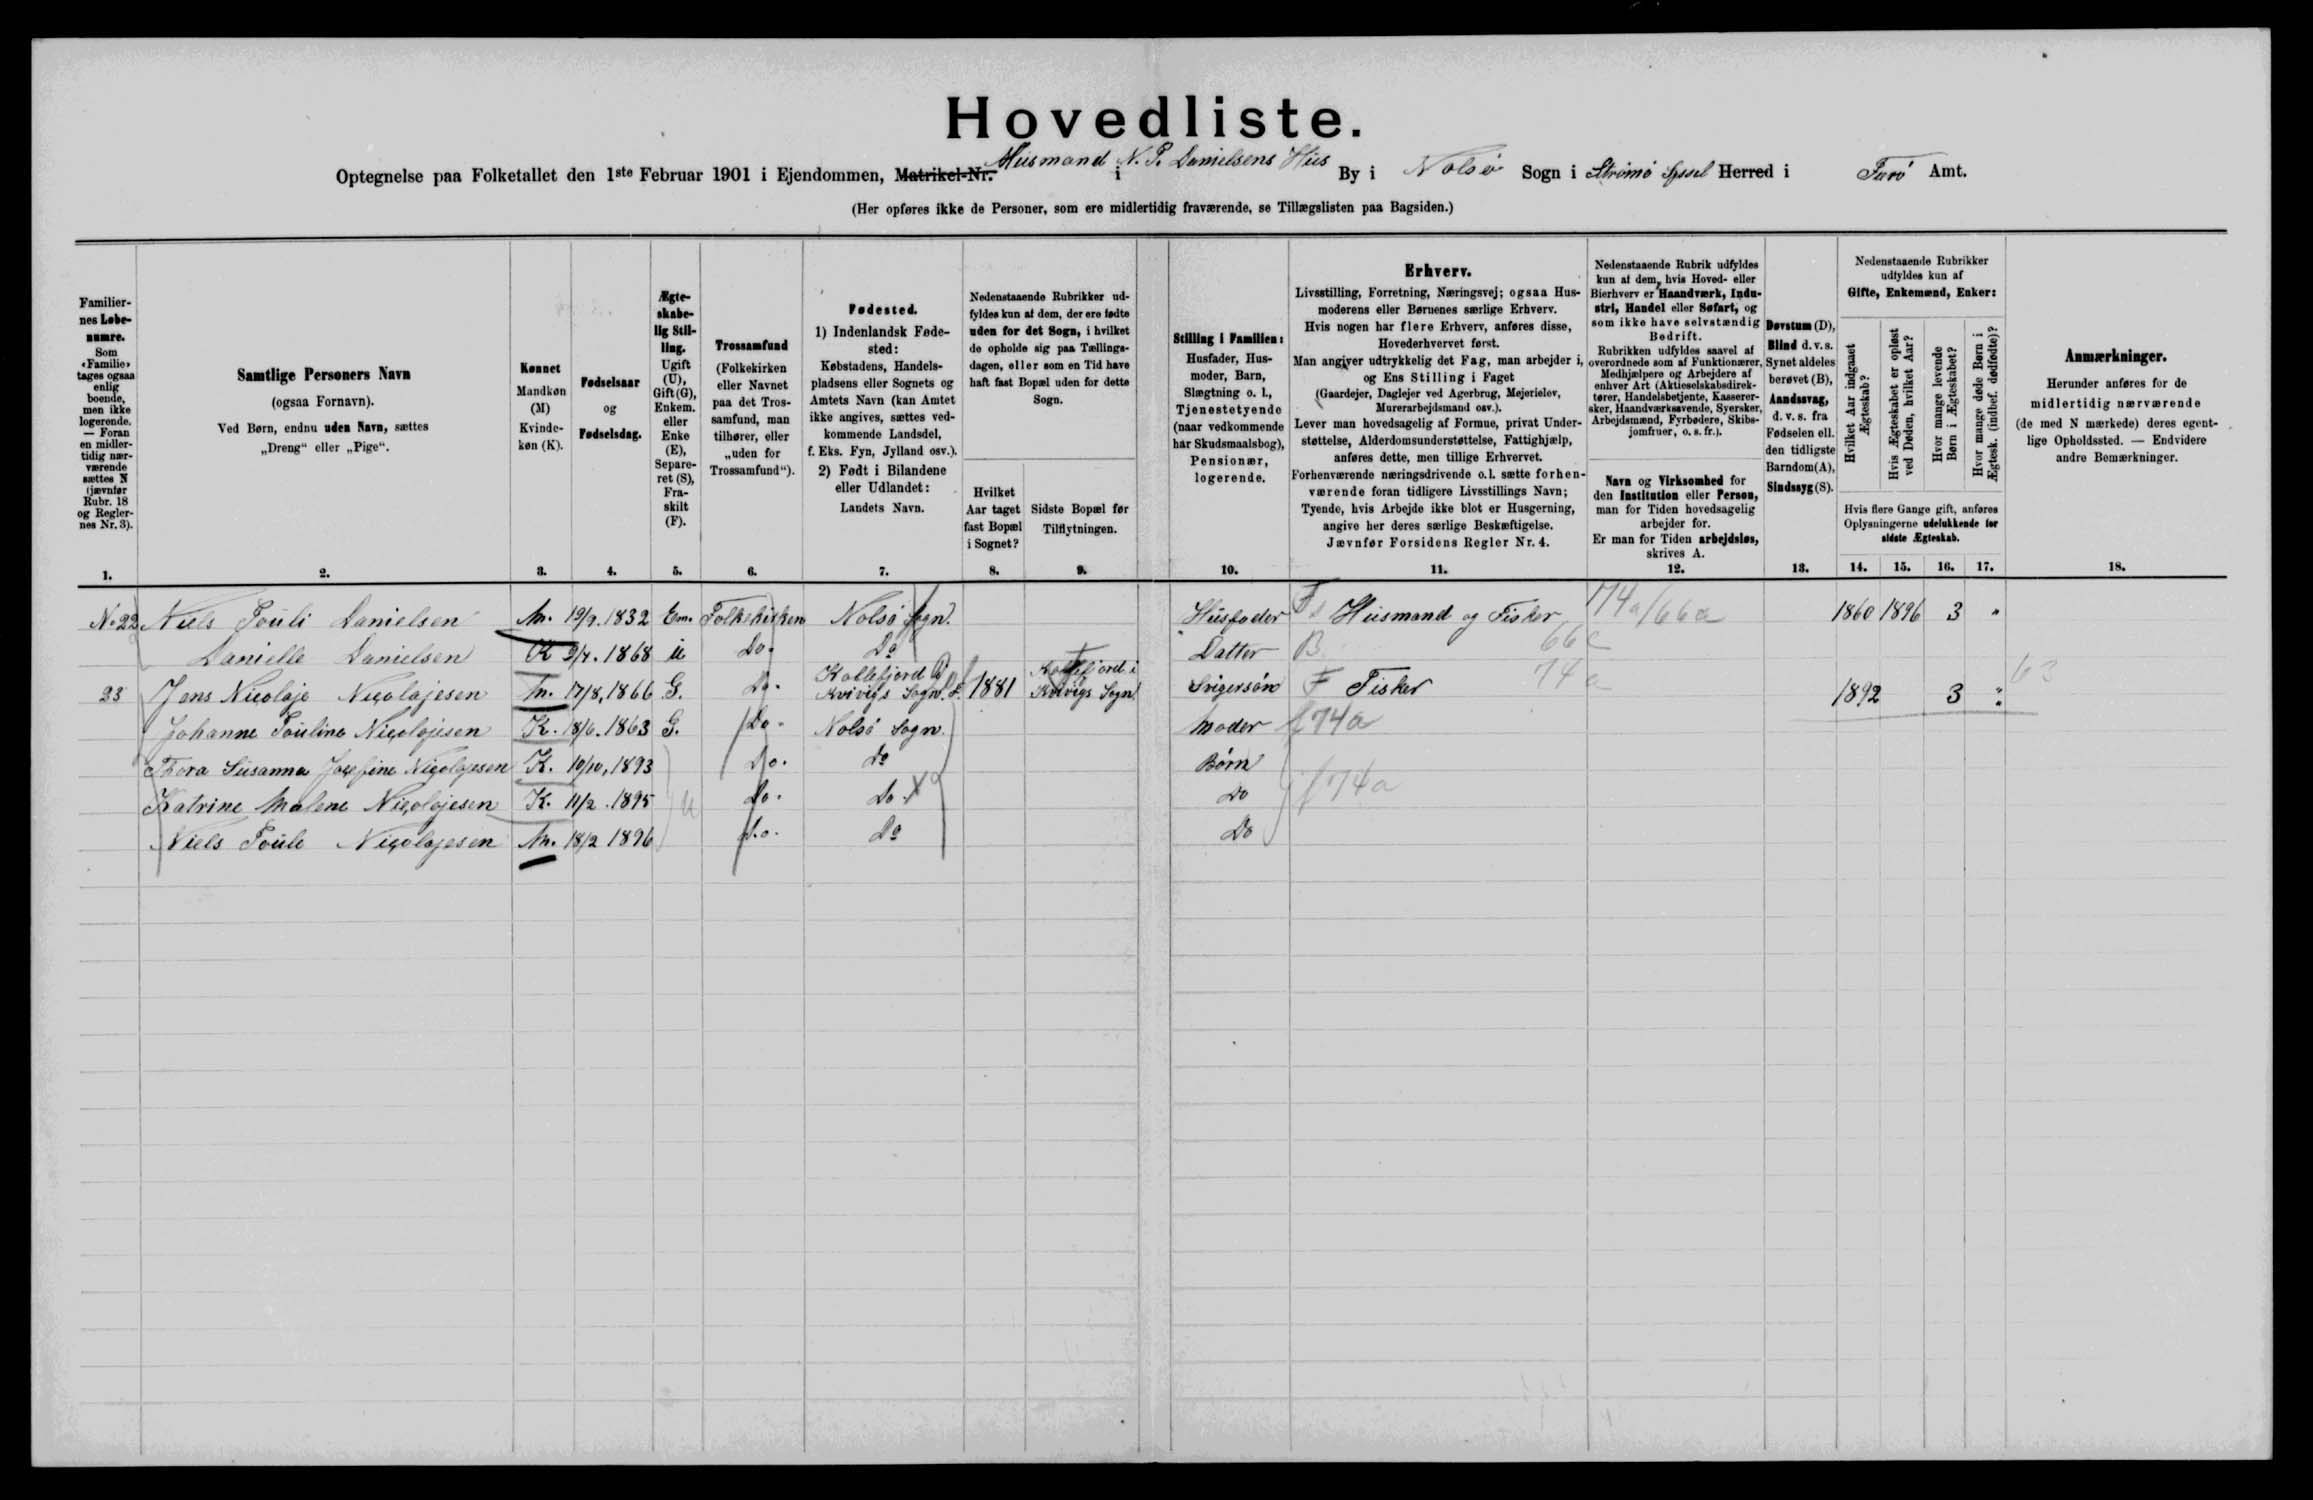 Hovedliste.
Optegnelse paa Folketallet den 1ste Februar 1901 i Ejendommen, Matrikel-Nr. Husmand N. P. Danielsens Hus i By i Nolsø Sogn i Strømø Syssel Herred i Færø Amt.
(Her opføres ikke de Personer, som ere midlertidig fraværende, se Tillægslisten paa Bagsiden.)
Familiernes Løbenumre.
Som «Familie» tages ogsaa enlig boende, men ikke logerende. — Foran en midlertidig nærværende sættes N (jævnfør Rubr. 18 og Reglernes Nr. 3).
1.
Samtlige Personers Navn
(ogsaa Fornavn).
Ved Børn, endnu uden Navn, sættes
„Dreng“ eller „Pige“.
2.
Kønnet
Mandkøn (M)
Kvindekøn (K).
3.
Fødselsaar
og
Fødselsdag.
4.
Ægteskabelig Stilling.
Ugift (U), Gift (G), Enkem. eller Enke (E), Separeret (S), Fraskilt (F).
5.
Trossamfund
(Folkekirken eller Navnet paa det Trossamfund, man tilhører, eller „uden for Trossamfund“).
6.
Fødested.
1) Indenlandsk Fødested:
Købstadens, Handelspladsens eller Sognets og Amtets Navn (kan Amtet ikke angives, sættes vedkommende Landsdel, f. Eks. Fyn, Jylland osv.).
2) Født i Bilandene eller Udlandet:
Landets Navn.
7.
Nedenstaaende Rubrikker udfyldes kun af dem, der ere fødte uden for det Sogn, i hvilket de opholde sig paa Tællingsdagen, eller som en Tid have haft fast Bopæl uden for dette Sogn.
Hvilket Aar taget fast Bopæl i Sognet?
8.
Sidste Bopæl før Tilflytningen.
9.
Stilling i Familien:
Husfader, Husmoder, Barn, Slægtning o. l., Tjenestetyende (naar vedkommende har Skudsmaalsbog), Pensionær, logerende.
10.
Erhverv.
Livsstilling, Forretning, Næringsvej; ogsaa Husmoderens eller Børnenes særlige Erhverv.
Hvis nogen har flere Erhverv, anføres disse, Hovederhvervet først.
Man angiver udtrykkelig det Fag, man arbejder i, og Ens Stilling i Faget
(Gaardejer, Daglejer ved Agerbrug, Mejerielev, Murerarbejdsmand osv.).
Lever man hovedsagelig af Formue, privat Understøttelse, Alderdomsunderstøttelse, Fattighjælp, anføres dette, men tillige Erhvervet.
Forhenværende næringsdrivende o. l. sætte forhenværende foran tidligere Livsstillings Navn;
Tyende, hvis Arbejde ikke blot er Husgerning, angive her deres særlige Beskæftigelse.
Jævnfør Forsidens Regler Nr. 4.
11.
Nedenstaaende Rubrik udfyldes kun af dem, hvis Hoved- eller Bierhverv er Haandværk, Industri, Handel eller Søfart, og som ikke have selvstændig Bedrift.
Rubrikken udfyldes saavel af overordnede som af Funktionærer, Medhjælpere og Arbejdere af enhver Art (Aktieselskabsdirektører, Handelsbetjente, Kasserersker, Haandværkssvende, Syersker, Arbejdsmænd, Fyrbødere, Skibsjomfruer, o. s. fr.).
Navn og Virksomhed for den Institution eller Person, man for Tiden hovedsagelig arbejder for.
Er man for Tiden arbejdsløs, skrives A.
12.
Døvstum (D), Blind d. v. s. Synet aldeles berøvet (B), Aandssvag, d. v. s. fra Fødselen ell. den tidligste Barndom (A), Sindssyg (S).
13.
Nedenstaaende Rubrikker udfyldes kun af
Gifte, Enkemænd, Enker:
Hvilket Aar indgaaet Ægteskab?
Hvis Ægteskabet er opløst ved Døden, hvilket Aar?
Hvor mange levende Børn i Ægteskabet?
Hvor mange døde Børn i Ægtesk. (indbef. dødfødte)?
Hvis flere Gange gift, anføres Oplysningerne udelukkende for sidste Ægteskab.
14. 15. 16. 17.
Anmærkninger.
Herunder anføres for de midlertidig nærværende (de med N mærkede) deres egentlige Opholdssted. — Endvidere andre Bemærkninger.
18.
No 22 Niels Pouli Danielsen M. 19/9. 1832 Em. Folkekirken Nolsø Sogn. Husfader F Husmand og Fisker 174a/66a 1860 1896 3 "
Danielle Danielsen K 9/4. 1868 U Do. Do Datter B. 66c
23 Jens Nicolaje Nicolajesen M. 17/8, 1866 G. Do. Kollefjord i Kvivigs Sogn. 1881 Kollefjord i Kvivigs Sogn Svigersøn F Fisker 74a 1892 3 " 63
Johanne Pouline Nicolajesen K. 18/6. 1863 G. Do. Nolsø Sogn. Moder f 74a
Thora Susanna Josefine Nicolajesen K. 10/10, 1893 Do. Do Børn
Katrine Malene Nicolajesen K. 11/2. 1895 U Do. Do. Do f 74a
Niels Pouli Nicolajesen M. 18/2 1896 Do. Do Do